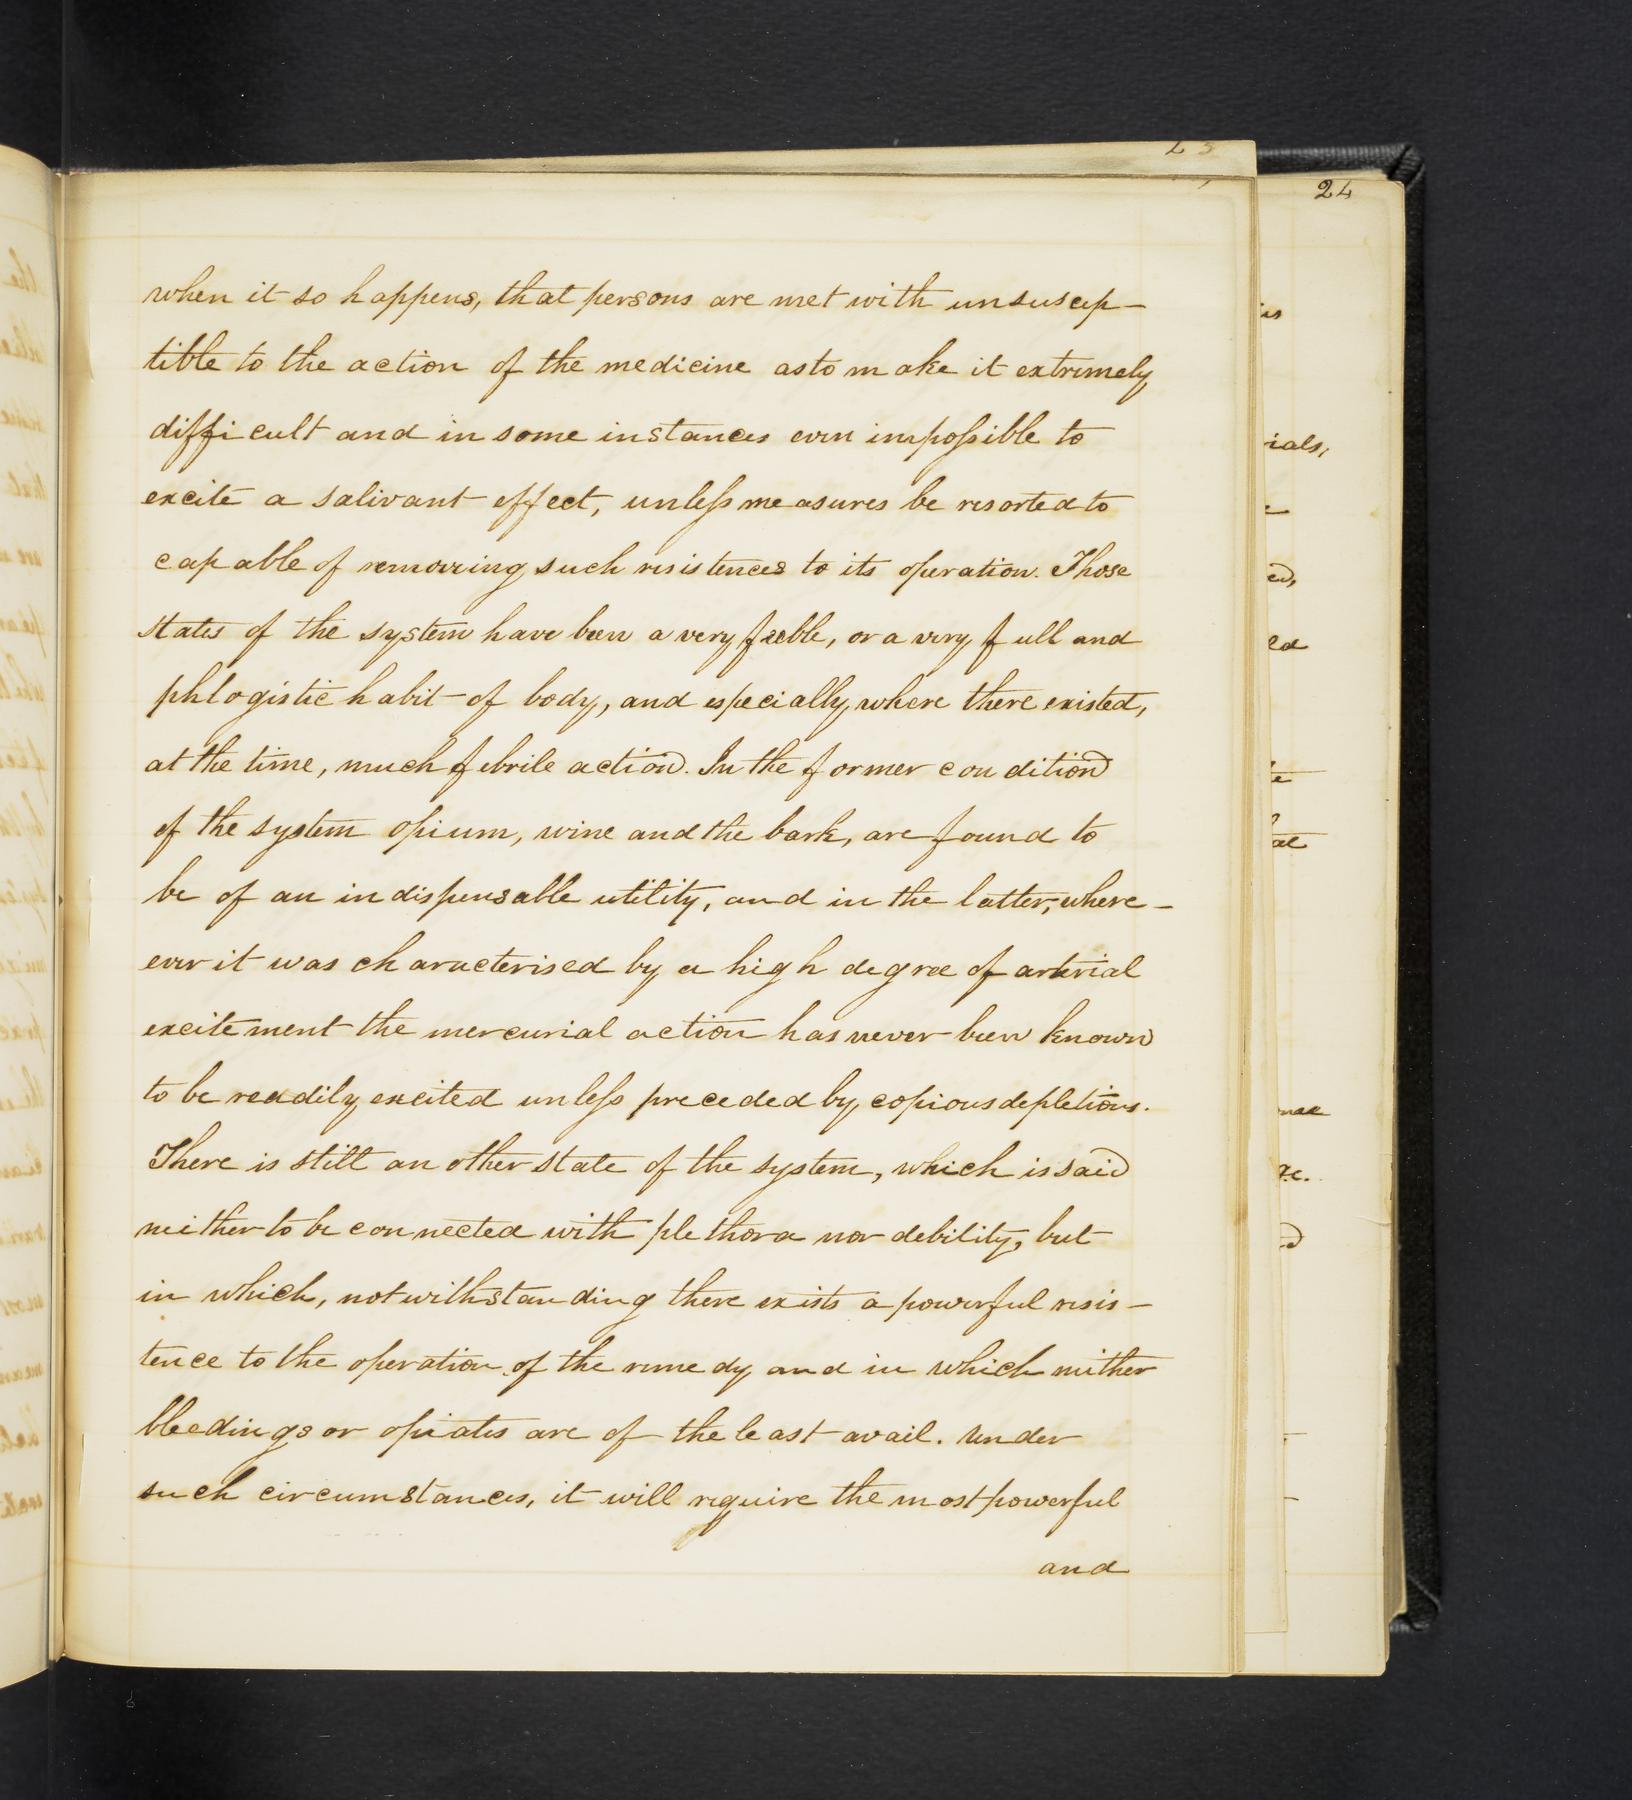 23
24
when it so happens, that persons are met with unsuscep-
tible to the action of the medicine as to make it extremely
difficult and in some instances even impossible to
excite a salivant effect, unless measures be resorted to
capable of removing such resistences to its operation. Those
states of the system have been a very feeble, or a very full and
phlogistic habit of body, and especially where there existed,
at the time, much febrile action. In the former condition
of the system opium, wine and the bark, are found to
be of an indispensable utility, and in the latter, where-
ever it was characterised by a high degree of arterial
excitement the mercurial action has never been known
to be readily excited unless preceded by copious depletions.
There is still another state of the system, which is said
neither to be connected with plethora nor debility, but
in which, notwithstanding there exists a powerful resis-
tence to the operation of the remedy and in which neither
bleedings or opiates are of the least avail. Under
such circumstances, it will require the most powerful
and